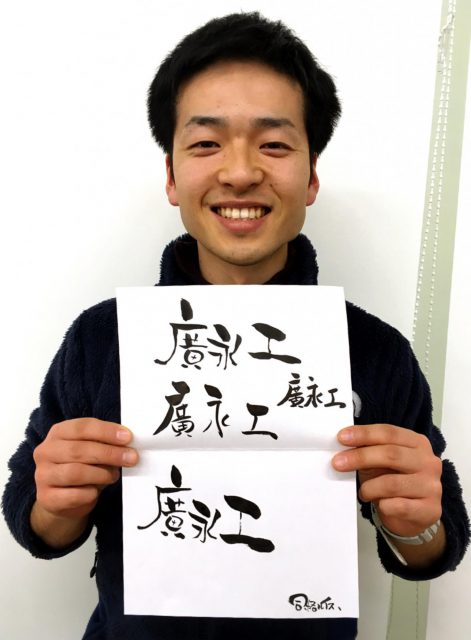 廣永工
廣永工
廣永工
廣永工